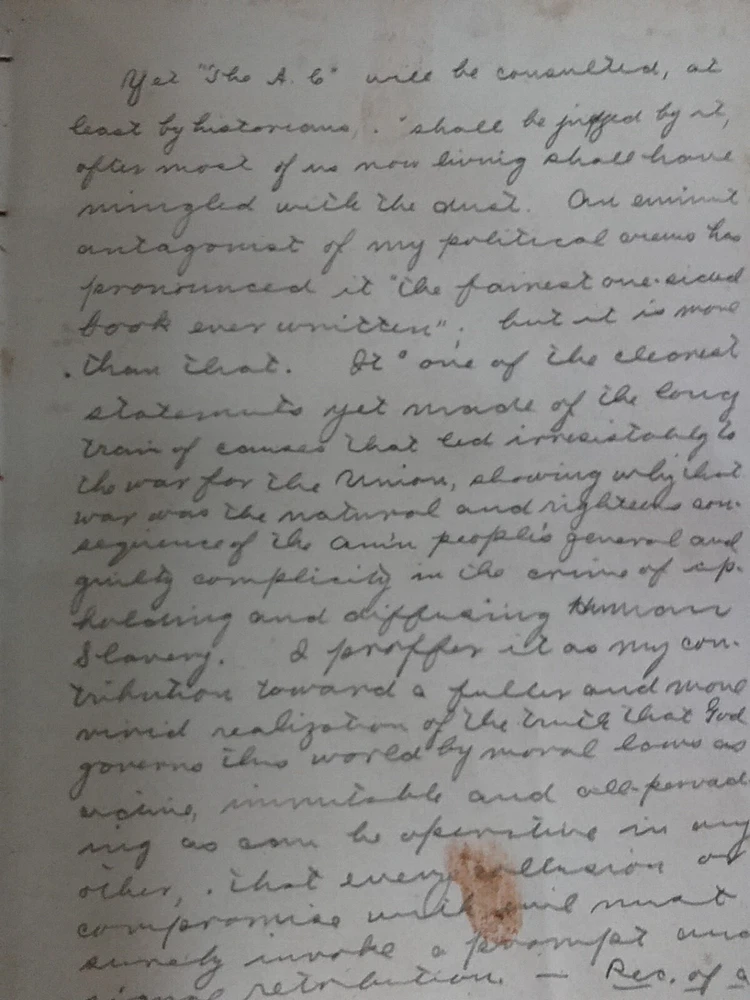 Yet "The A. C" will be consulted, at
least by historians, . shall be judged by it,
after most of us now living shall have
mingled with the dust. An eminent
antagonist of my political views has
pronounced it "the fairest one-sided
book ever written"; but it is more
. than that. It ° one of the clearest
statements yet made of the long
train of causes that led irresistably to
the war for the Union, showing why that
war was the natural and righteous con-
sequence of the Amn people's general and
guilty complicity in the crime of up-
holding and diffusing Human
Slavery. I proffer it as my con-
tribution toward a fuller and more
vivid realization of the truth that God
governs this world by moral laws as
active, immutable and all-pervad
ing as can be operative in any
other, . that every collusion or
compromise with evil must
surely invoke a prompt and
signal retribution. — Rec. of a